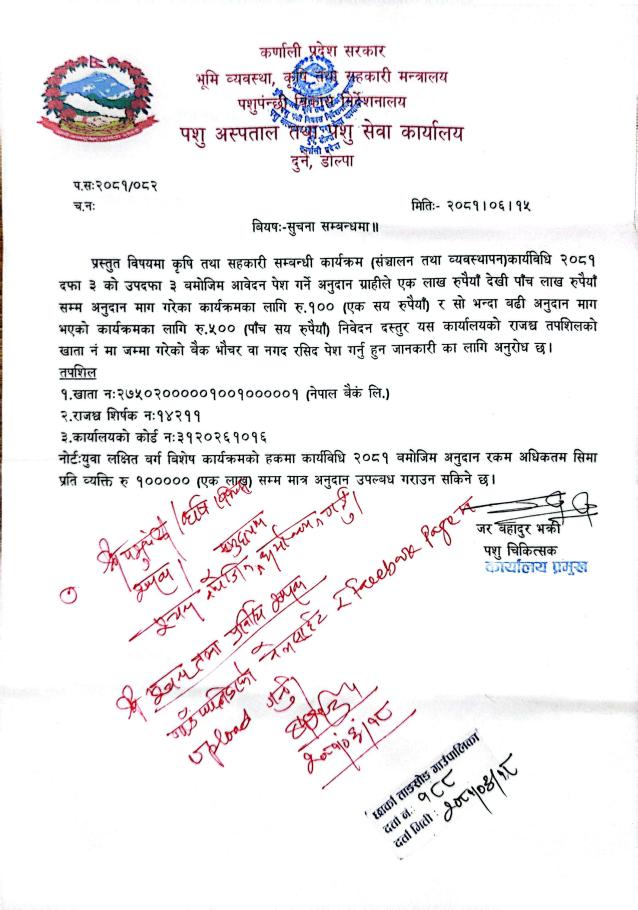 कर्णाली प्रदेश सरकार
भूमि व्यवस्था, कृषि तथा सहकारी मन्त्रालय
पशुपंन्छी विकास निर्देशनालय
पशु अस्पताल तथा पशु सेवा कार्यालय
दुनै, डोल्पा
प.सः२०८१/०८२
च.नः
मितिः- २०८१।०६।१५
बिषयः-सुचना सम्बन्धमा॥
प्रस्तुत विषयमा कृषि तथा सहकारी सम्बन्धी कार्यक्रम (संञ्चालन तथा व्यवस्थापन)कार्यविधि २०८१
दफा ३ को उपदफा ३ बमोजिम आवेदन पेश गर्ने अनुदान ग्राहीले एक लाख रुपैयाँ देखी पाँच लाख रुपैयाँ
सम्म अनुदान माग गरेका कार्यक्रमका लागि रु.१०० (एक सय रुपैयाँ) र सो भन्दा बढी अनुदान माग
भएको कार्यक्रमका लागि रु.५०० (पाँच सय रुपैयाँ) निवेदन दस्तुर यस कार्यालयको राजश्व तपशिलको
खाता नं मा जम्मा गरेको बैक भौचर वा नगद रसिद पेश गर्नु हुन जानकारी का लागि अनुरोध छ।
तपशिल
१.खाता नः२७५०२०००००१००१०००००१ (नेपाल बैकं लि.)
२.राजश्व शिर्षक नः१४२११
३.कार्यालयको कोर्ड नः३१२०२६१०१६
नोर्टःयुवा लक्षित वर्ग विशेष कार्यक्रमको हकमा कार्यविधि २०८१ बमोजिम अनुदान रकम अधिकतम सिमा
प्रति व्यक्ति रु १००००० (एक लाख) सम्म मात्र अनुदान उपल्वध गराउन सकिने छ।
जर बहादुर भर्को
पशु चिकित्सक
कार्यालय प्रमुख
श्री सूचना तथा प्रविधि शाखा
गाउँपालिकाको वेबसाईट र Facebook Page मा
upload गर्नु।
२०८१/०६/१८
छार्का ताङसोङ गाउँपालिका
दर्ता नं.: १८८
दर्ता मिती: २०८१/०६/१८